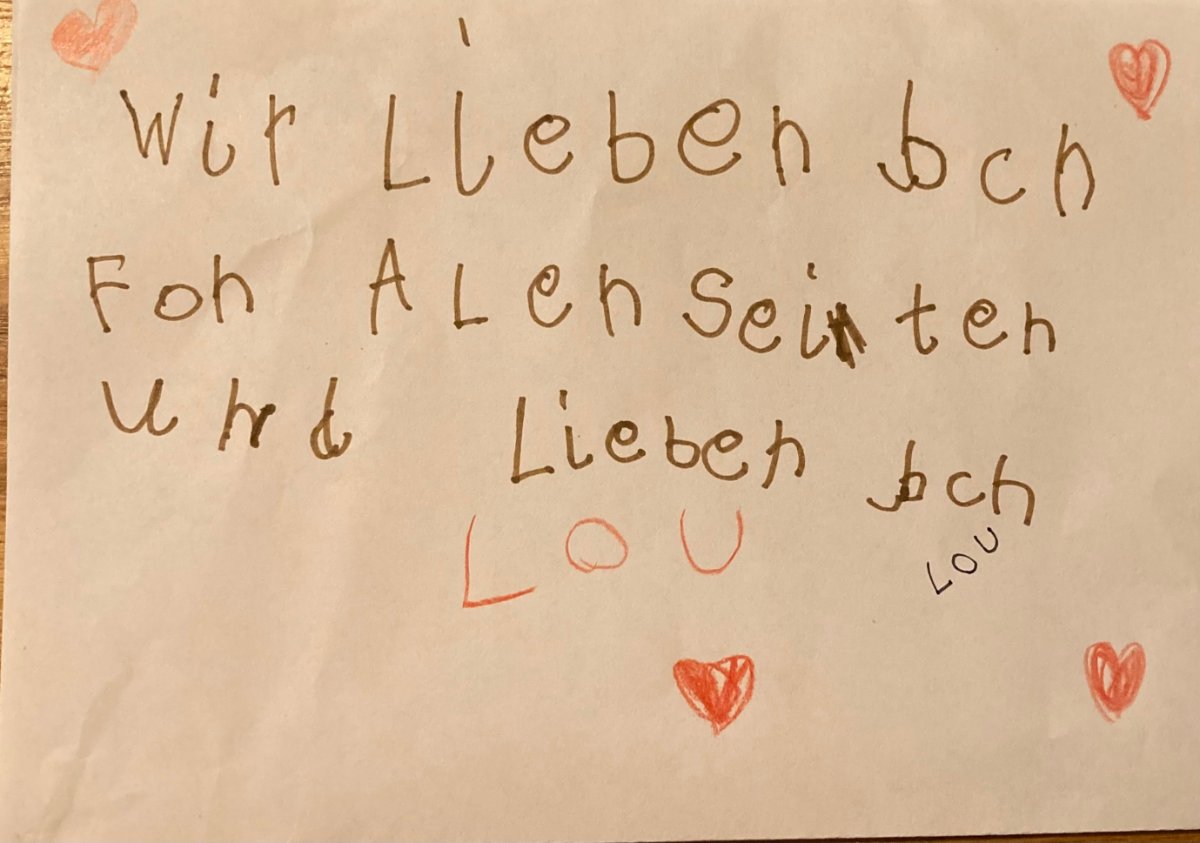 Wir Lieben bch
Fon ALen Seiten
und Lieben bch
LOU
LOU